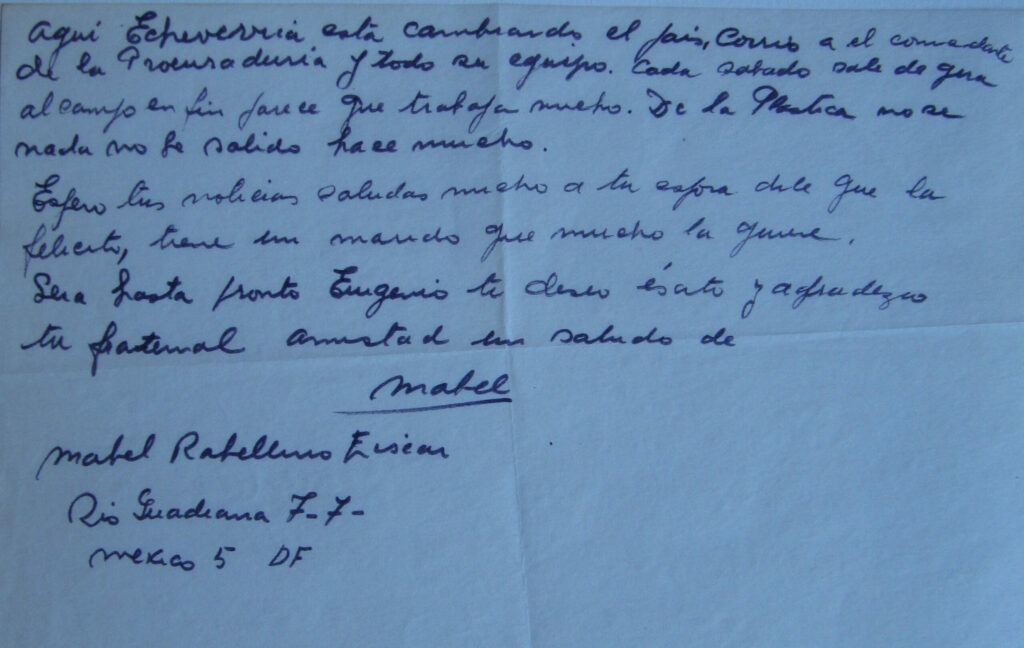 Aqui Echeverria está cambiando el pais, Corrio a el comandante
de la Procuraduria y todo su equipo. Cada sabado sale de gira
al campo en fin parece que trabaja mucho. De la Plastica no se
nada no he salido hace mucho.
Espero tus noticias saludas mucho a tu esposa dile que la
felicito, tiene un marido que mucho la quiere.
Sera hasta pronto Eugenio te deseo éxito y agradezco
tu fraternal amistad un saludo de
Mabel
Mabel Rabellino
Rio Guadiana 7-7-
Mexico 5 DF